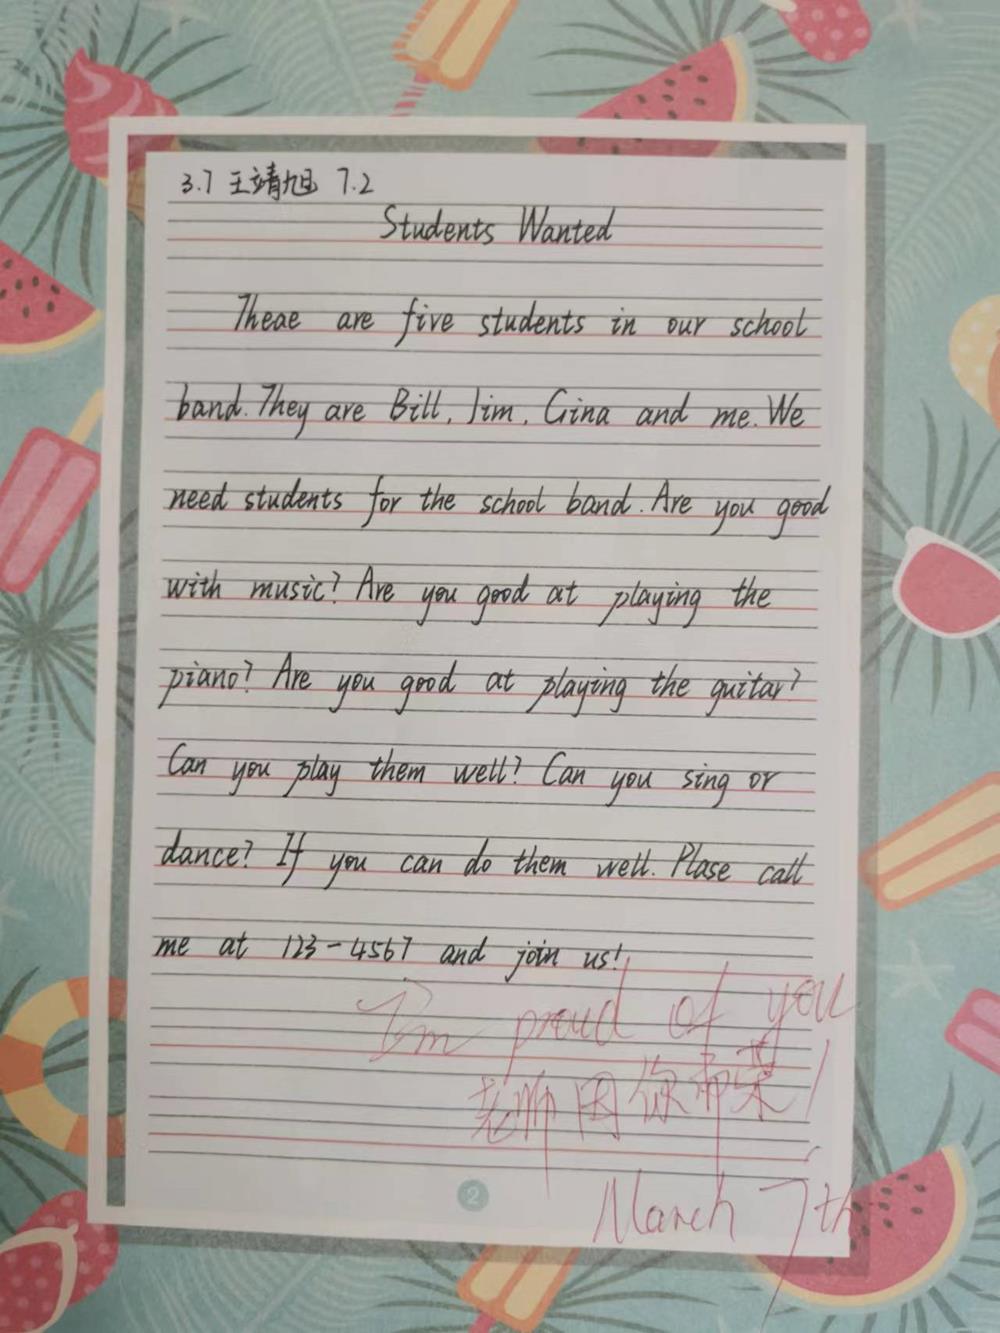 3.7 王靖旭 7.2
Students Wanted
Theae are five students in our school
band. They are Bill, Jim, Gina and me. We
need students for the school band. Are you good
with music? Are you good at playing the
piano? Are you good at playing the guitar?
Can you play them well? Can you sing or
dance? If you can do them well. Plase call
me at 123-4567 and join us!
I'm proud of you
老师因你而荣!
March 7th
2